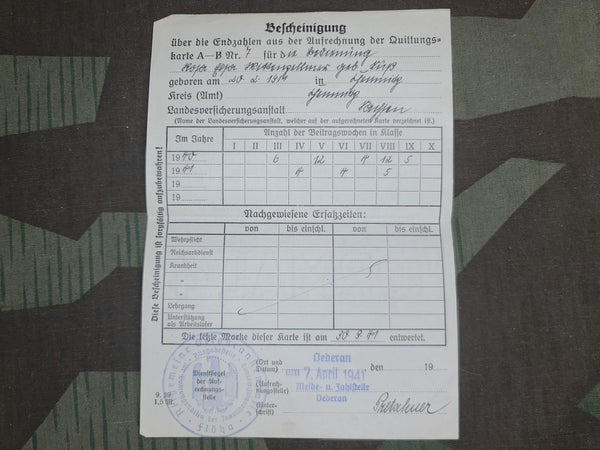 Bescheinigung
über die Endzahlen aus der Aufrechnung der Quittungs-
karte A—B Nr. 7 für die
geb.
geboren am 20 2 1914 in
Kreis (Amt)
Landesversicherungsanstalt Sachsen
(Name der Landesversicherungsanstalt, welcher auf der aufgerechneten Karte verzeichnet ist.)
Im Jahre
Anzahl der Beitragswochen in Klasse
I II III IV V VI VII VIII IX X
1940 6 12 4 12 5
1941 4 4 5
19
19
Nachgewiesene Ersatzzeiten:
von bis einschl. von bis einschl.
Wehrpflicht
Reichsarbdienst
Krankheit
"
"
Lehrgang
Unterstützung
als Arbeitsloser
Die letzte Marke dieser Karte ist am 30 3 41 entwertet.
Diese Bescheinigung ist sorgfältig aufzubewahren!
Dienstsiegel
der Auf-
rechnungs-
stelle
(Ort und
Datum)
Oederan
am 7. April 1941
den 19
(Aufrech-
nungsstelle)
Melde- u. Zahlstelle
Oederan
(Unter-
schrift)
9. 39